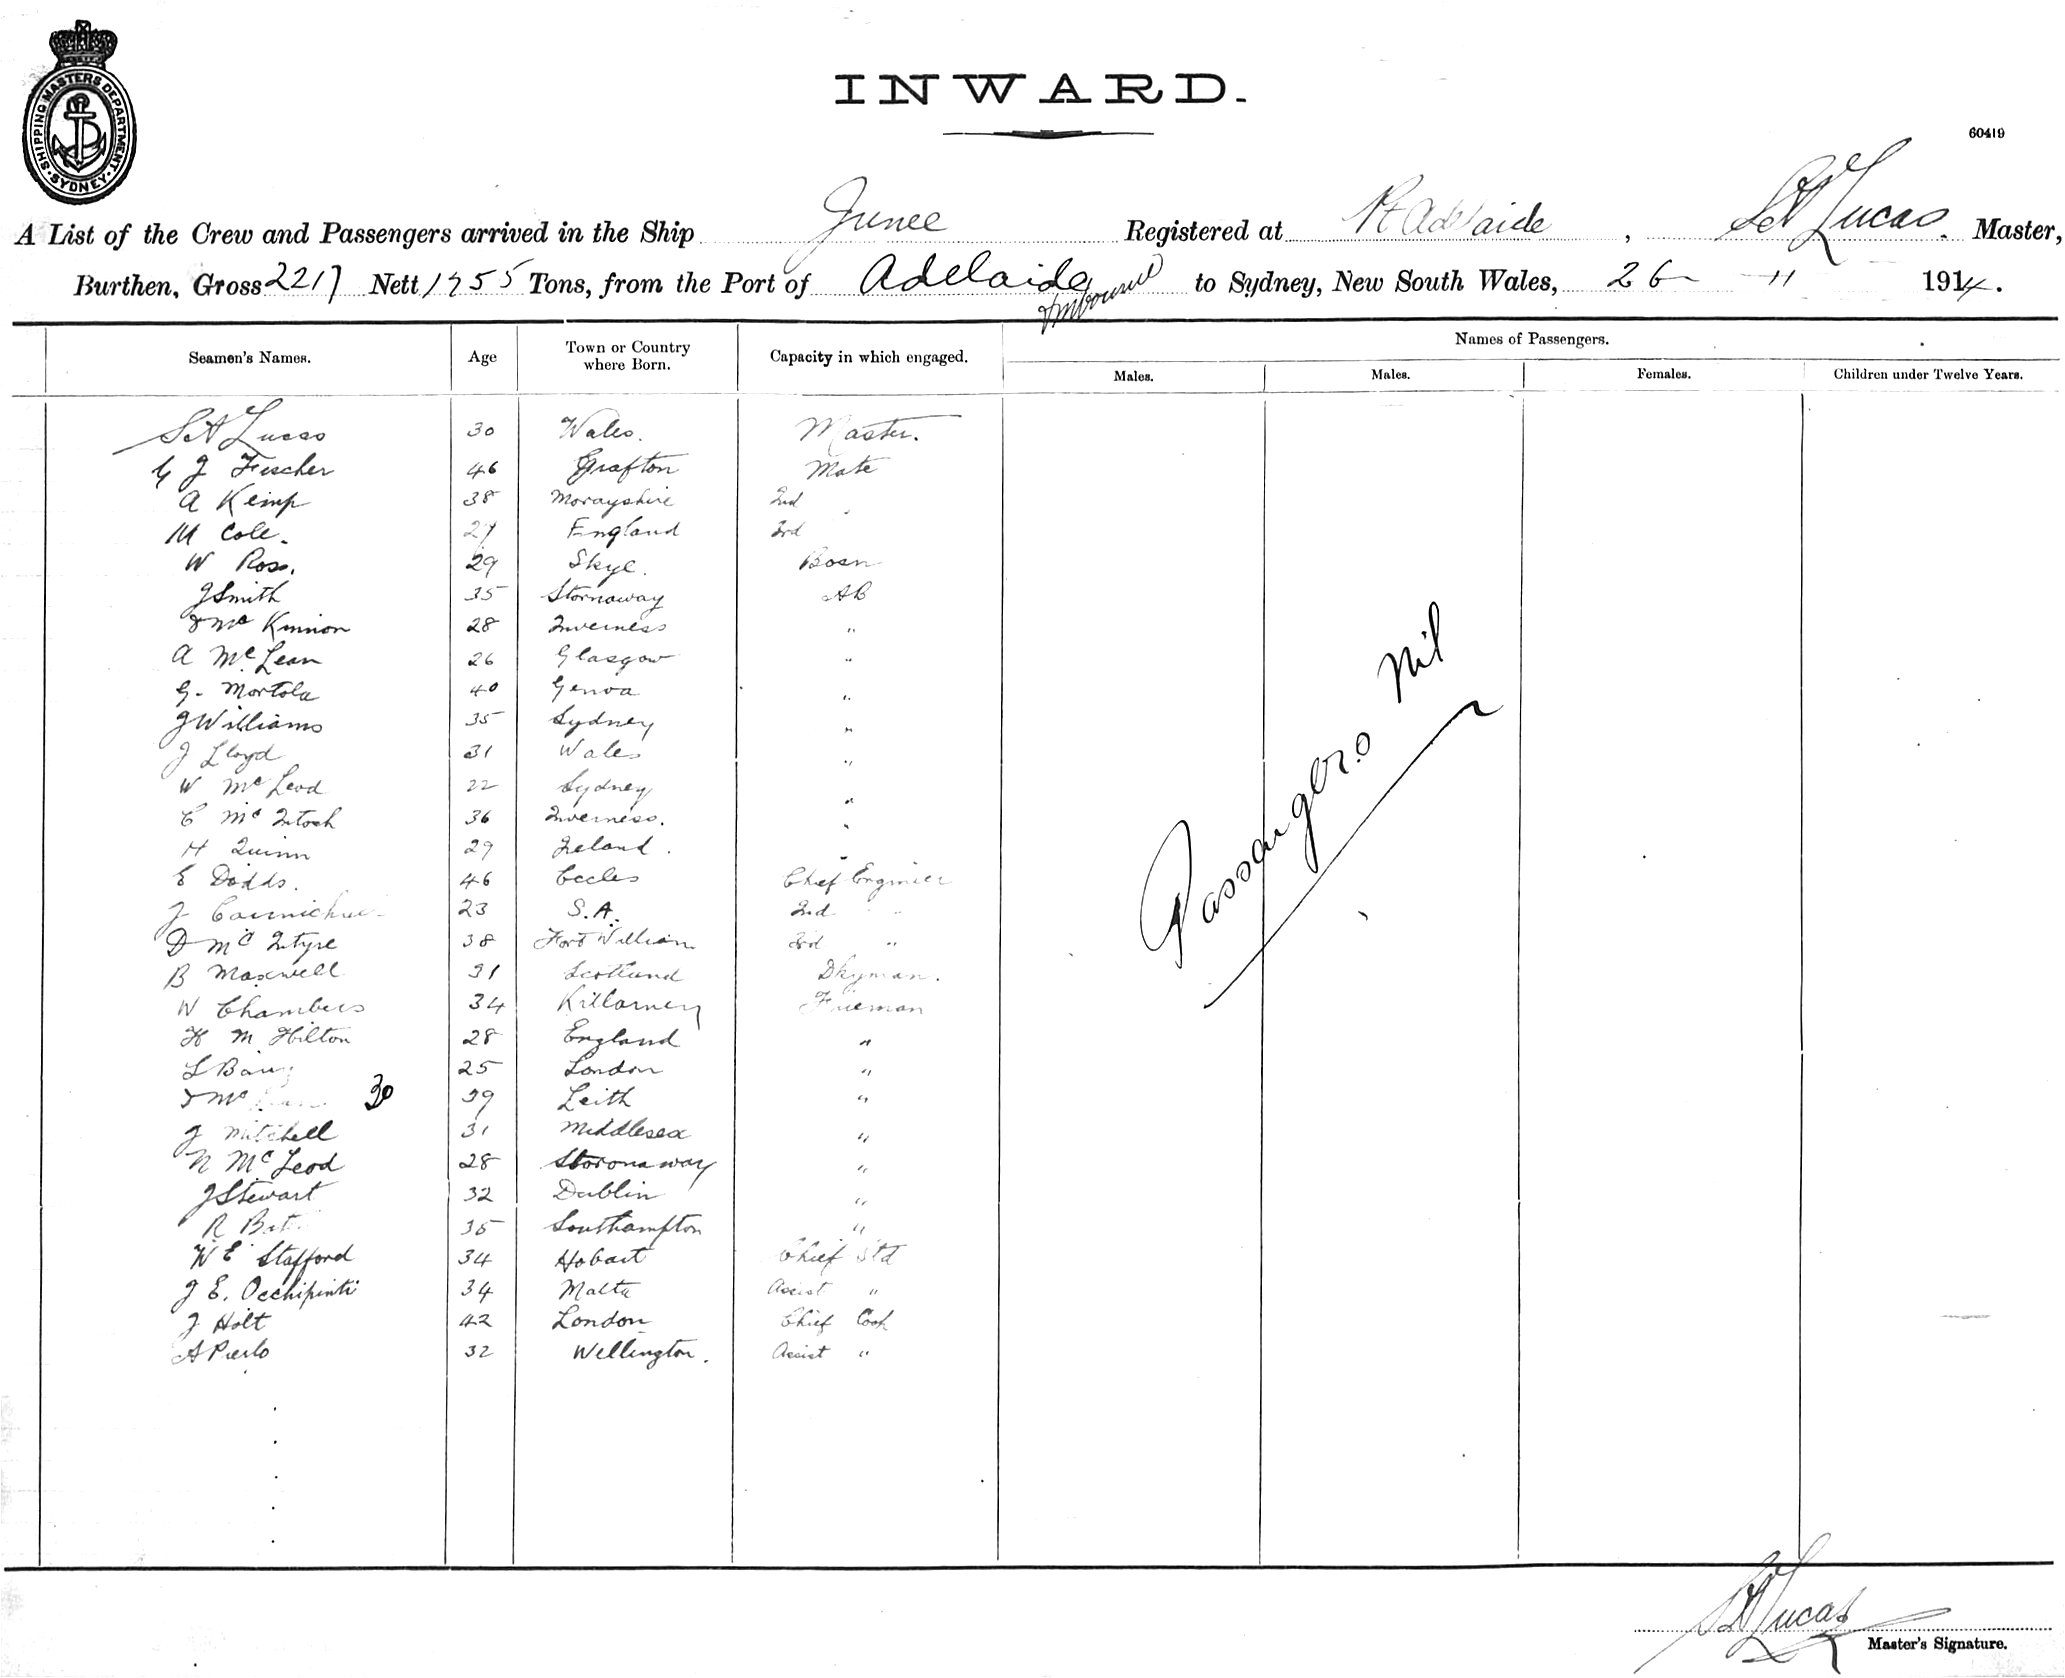 SHIPPING MASTERS DEPARTMENT · SYDNEY ·
INWARD.
60419
A List of the Crew and Passengers arrived in the Ship Junee Registered at Pt Adelaide, Lucas. Master,
Burthen, Gross 2217 Nett Tons, from the Port of Adelaide to Sydney, New South Wales, 26 11 1914.
Seamen's Names. Age Town or Country where Born. Capacity in which engaged. Names of Passengers.
Males. Males. Females. Children under Twelve Years.
Lucas 30 Wales. Master.
J Fischer 46 Grafton Mate
A Kemp 38 Morayshire 2nd
M Cole. 27 England 3rd
W Ross. 29 Skye. Bosn
J Smith 35 Stornaway AB
Mc Kinnon 28 Inverness "
A McLean 26 Glasgow "
G. Mortola 40 Genoa "
J Williams 35 Sydney "
J Lloyd 31 Wales "
W McLeod 22 Sydney "
C Mc Intosh 36 Inverness. "
H Quinn 29 Ireland. "
E Dodds. 46 Eccles Chief Engineer
J 23 S.A. 2nd "
D Mc Intyre 38 Fort William 3rd "
B Maxwell 31 Scotland Dkyman.
W Chambers 34 Killarney Fireman
H M Hilton 28 England "
L 25 London "
Mc 30 39 Leith "
J Mitchell 31 Middlesex "
N McLeod 28 Storonaway "
J Stewart 32 Dublin "
R 35 Southampton "
W E Stafford 34 Hobart Chief Std
J E. Occhipinti 34 Malta Assist "
J Holt 42 London Chief Cook
A 32 Wellington. Assist "
Passengers Nil
Lucas
Master's Signature.